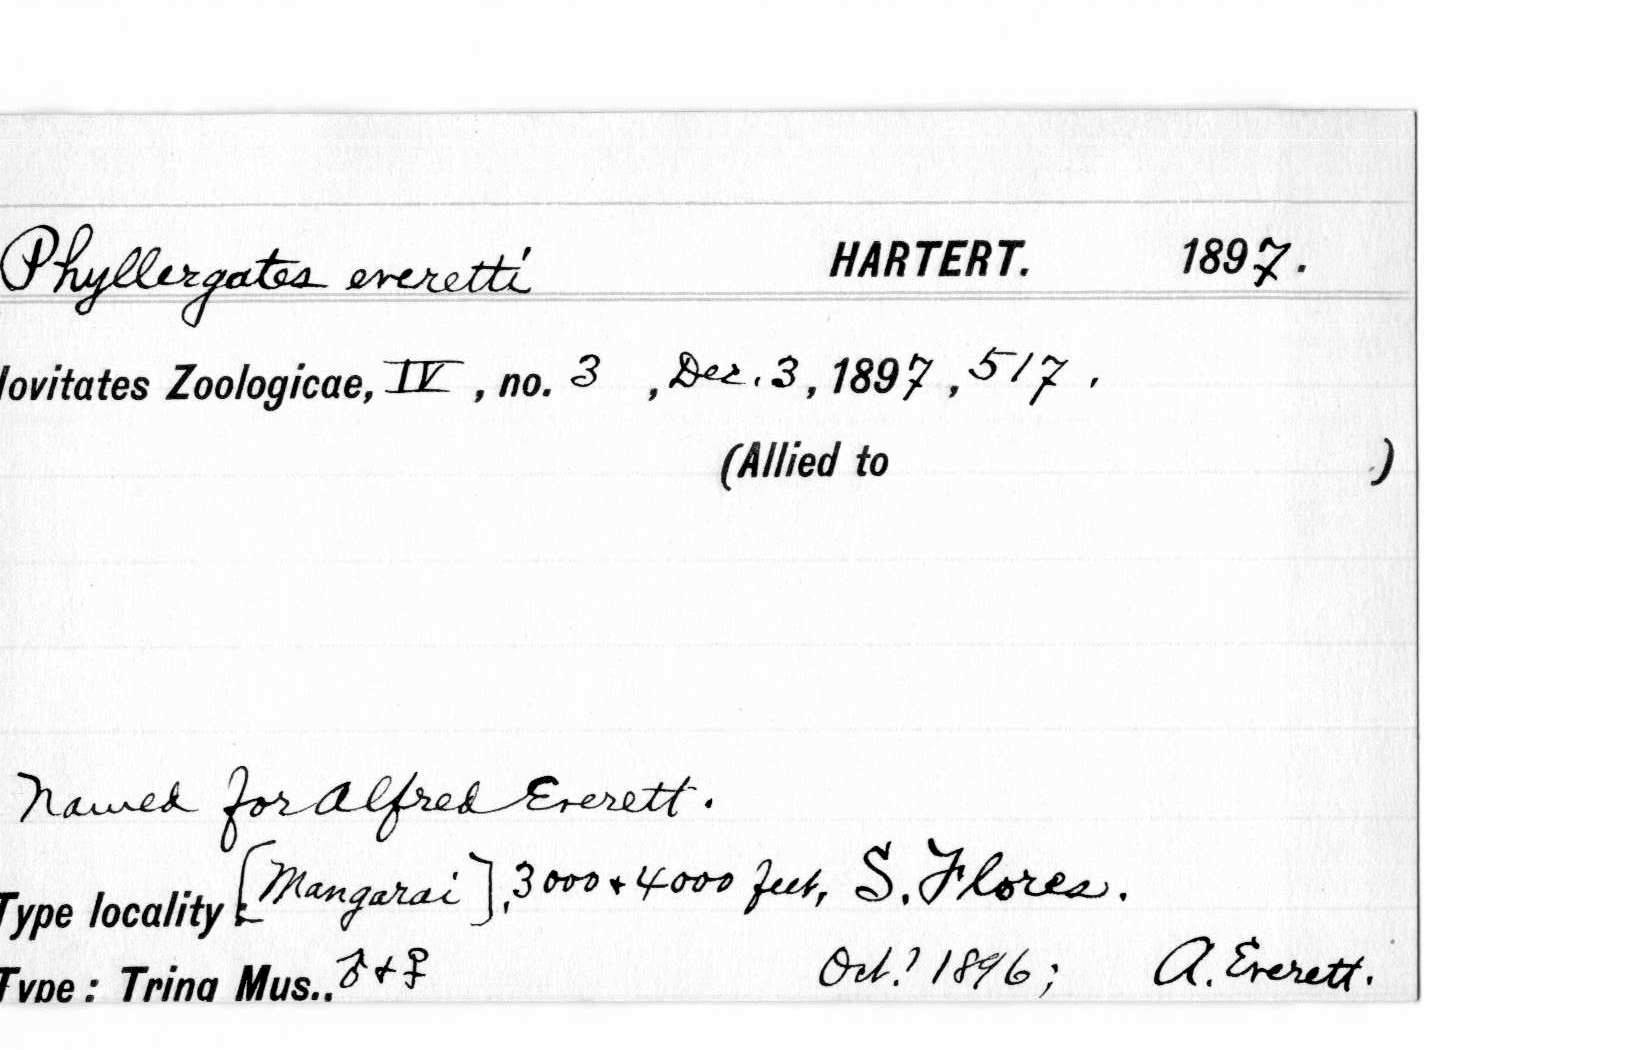 Phyllergates everetti HARTERT. 1897.
ovitates Zoologicae, IV, no. 3, Dec. 3, 1897, 517.
(Allied to )
Named for Alfred Everett.
Type locality: [Mangarai], 3000 + 4000 feet, S. Flores.
Type: Tring Mus.. ♂ + ♀ Oct.? 1896; A. Everett.